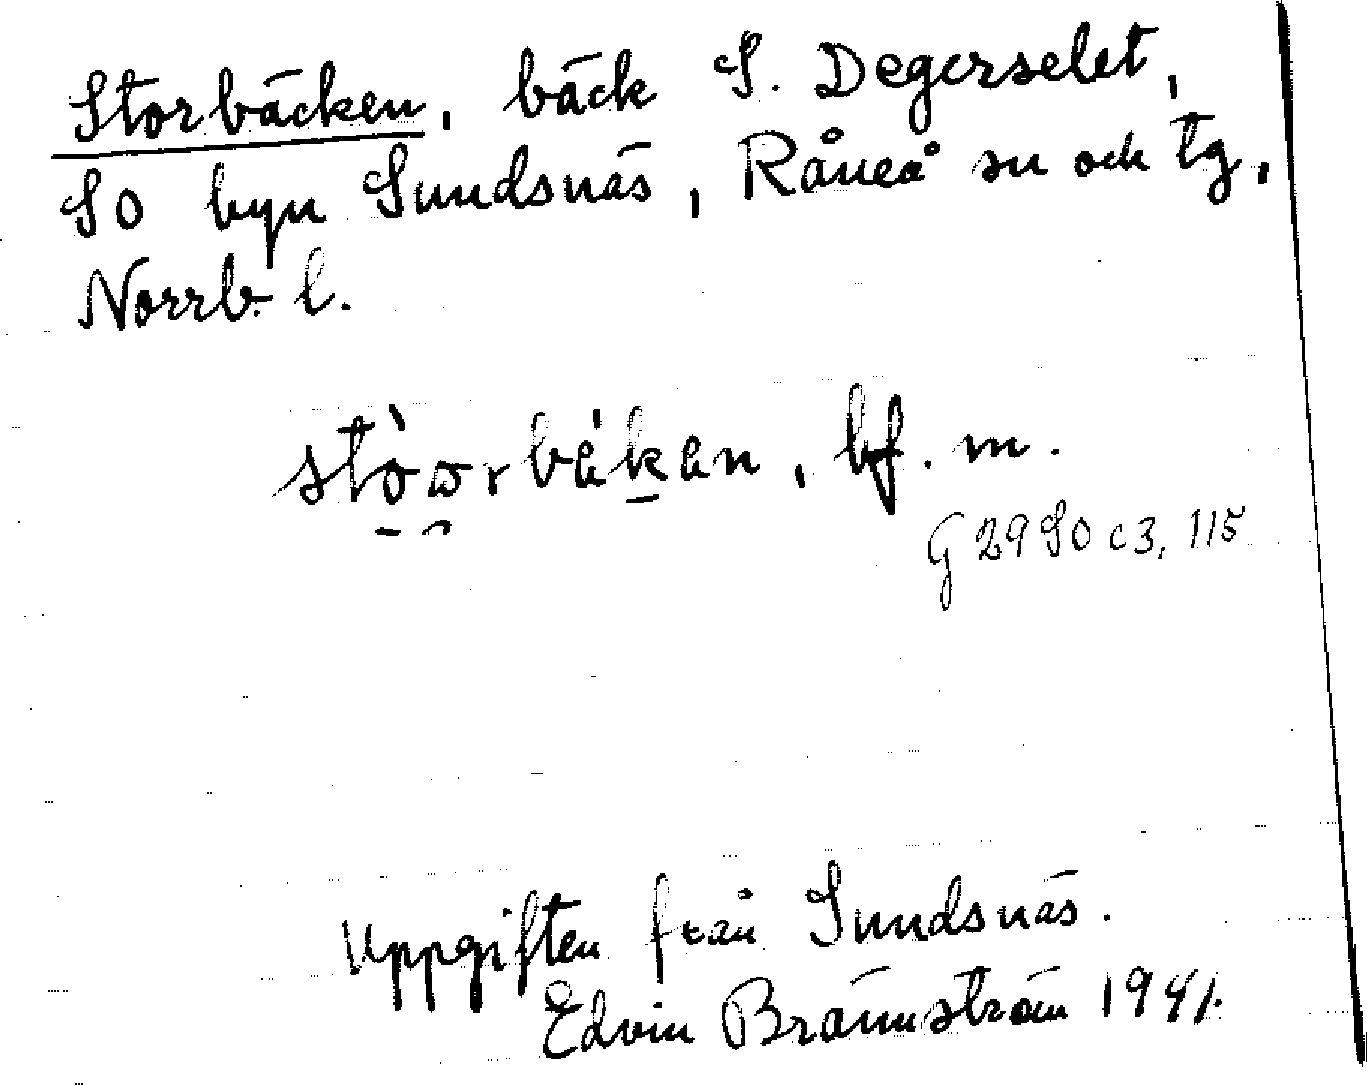 Storbäcken, bäck S. Degerselet,
SO byn Sundsnäs, Råneå sn och tg,
Norrb. l.
bf. m.
G 29 SO c3, 115
Uppgiften från Sundsnäs.
Edvin Brännström 1941.